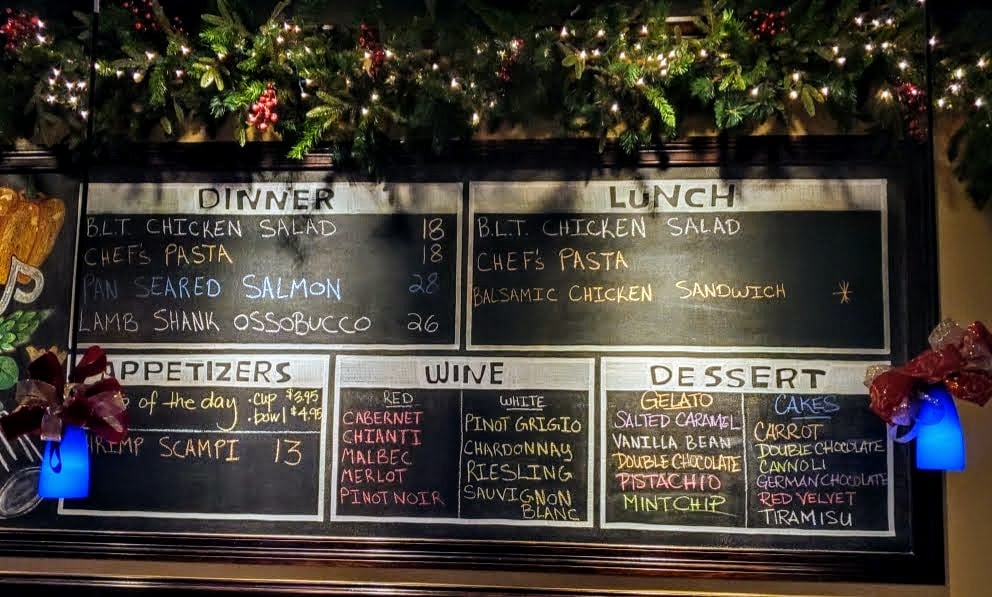 DINNER
B.L.T. CHICKEN SALAD 18
CHEF'S PASTA 18
PAN SEARED SALMON 28
LAMB SHANK OSSOBUCCO 26
LUNCH
B.L.T. CHICKEN SALAD
CHEF'S PASTA
BALSAMIC CHICKEN SANDWICH *
APPETIZERS
of the day .cup $3.95
.bowl $4.95
SHRIMP SCAMPI 13
WINE
RED
CABERNET
CHIANTI
MALBEC
MERLOT
PINOT NOIR
WHITE
PINOT GRIGIO
CHARDONNAY
RIESLING
SAUVIGNON
BLANC
DESSERT
GELATO
SALTED CARAMEL
VANILLA BEAN
DOUBLE CHOCOLATE
PISTACHIO
MINT CHIP
CAKES
CARROT
DOUBLE CHOCOLATE
CANNOLI
GERMAN CHOCOLATE
RED VELVET
TIRAMISU